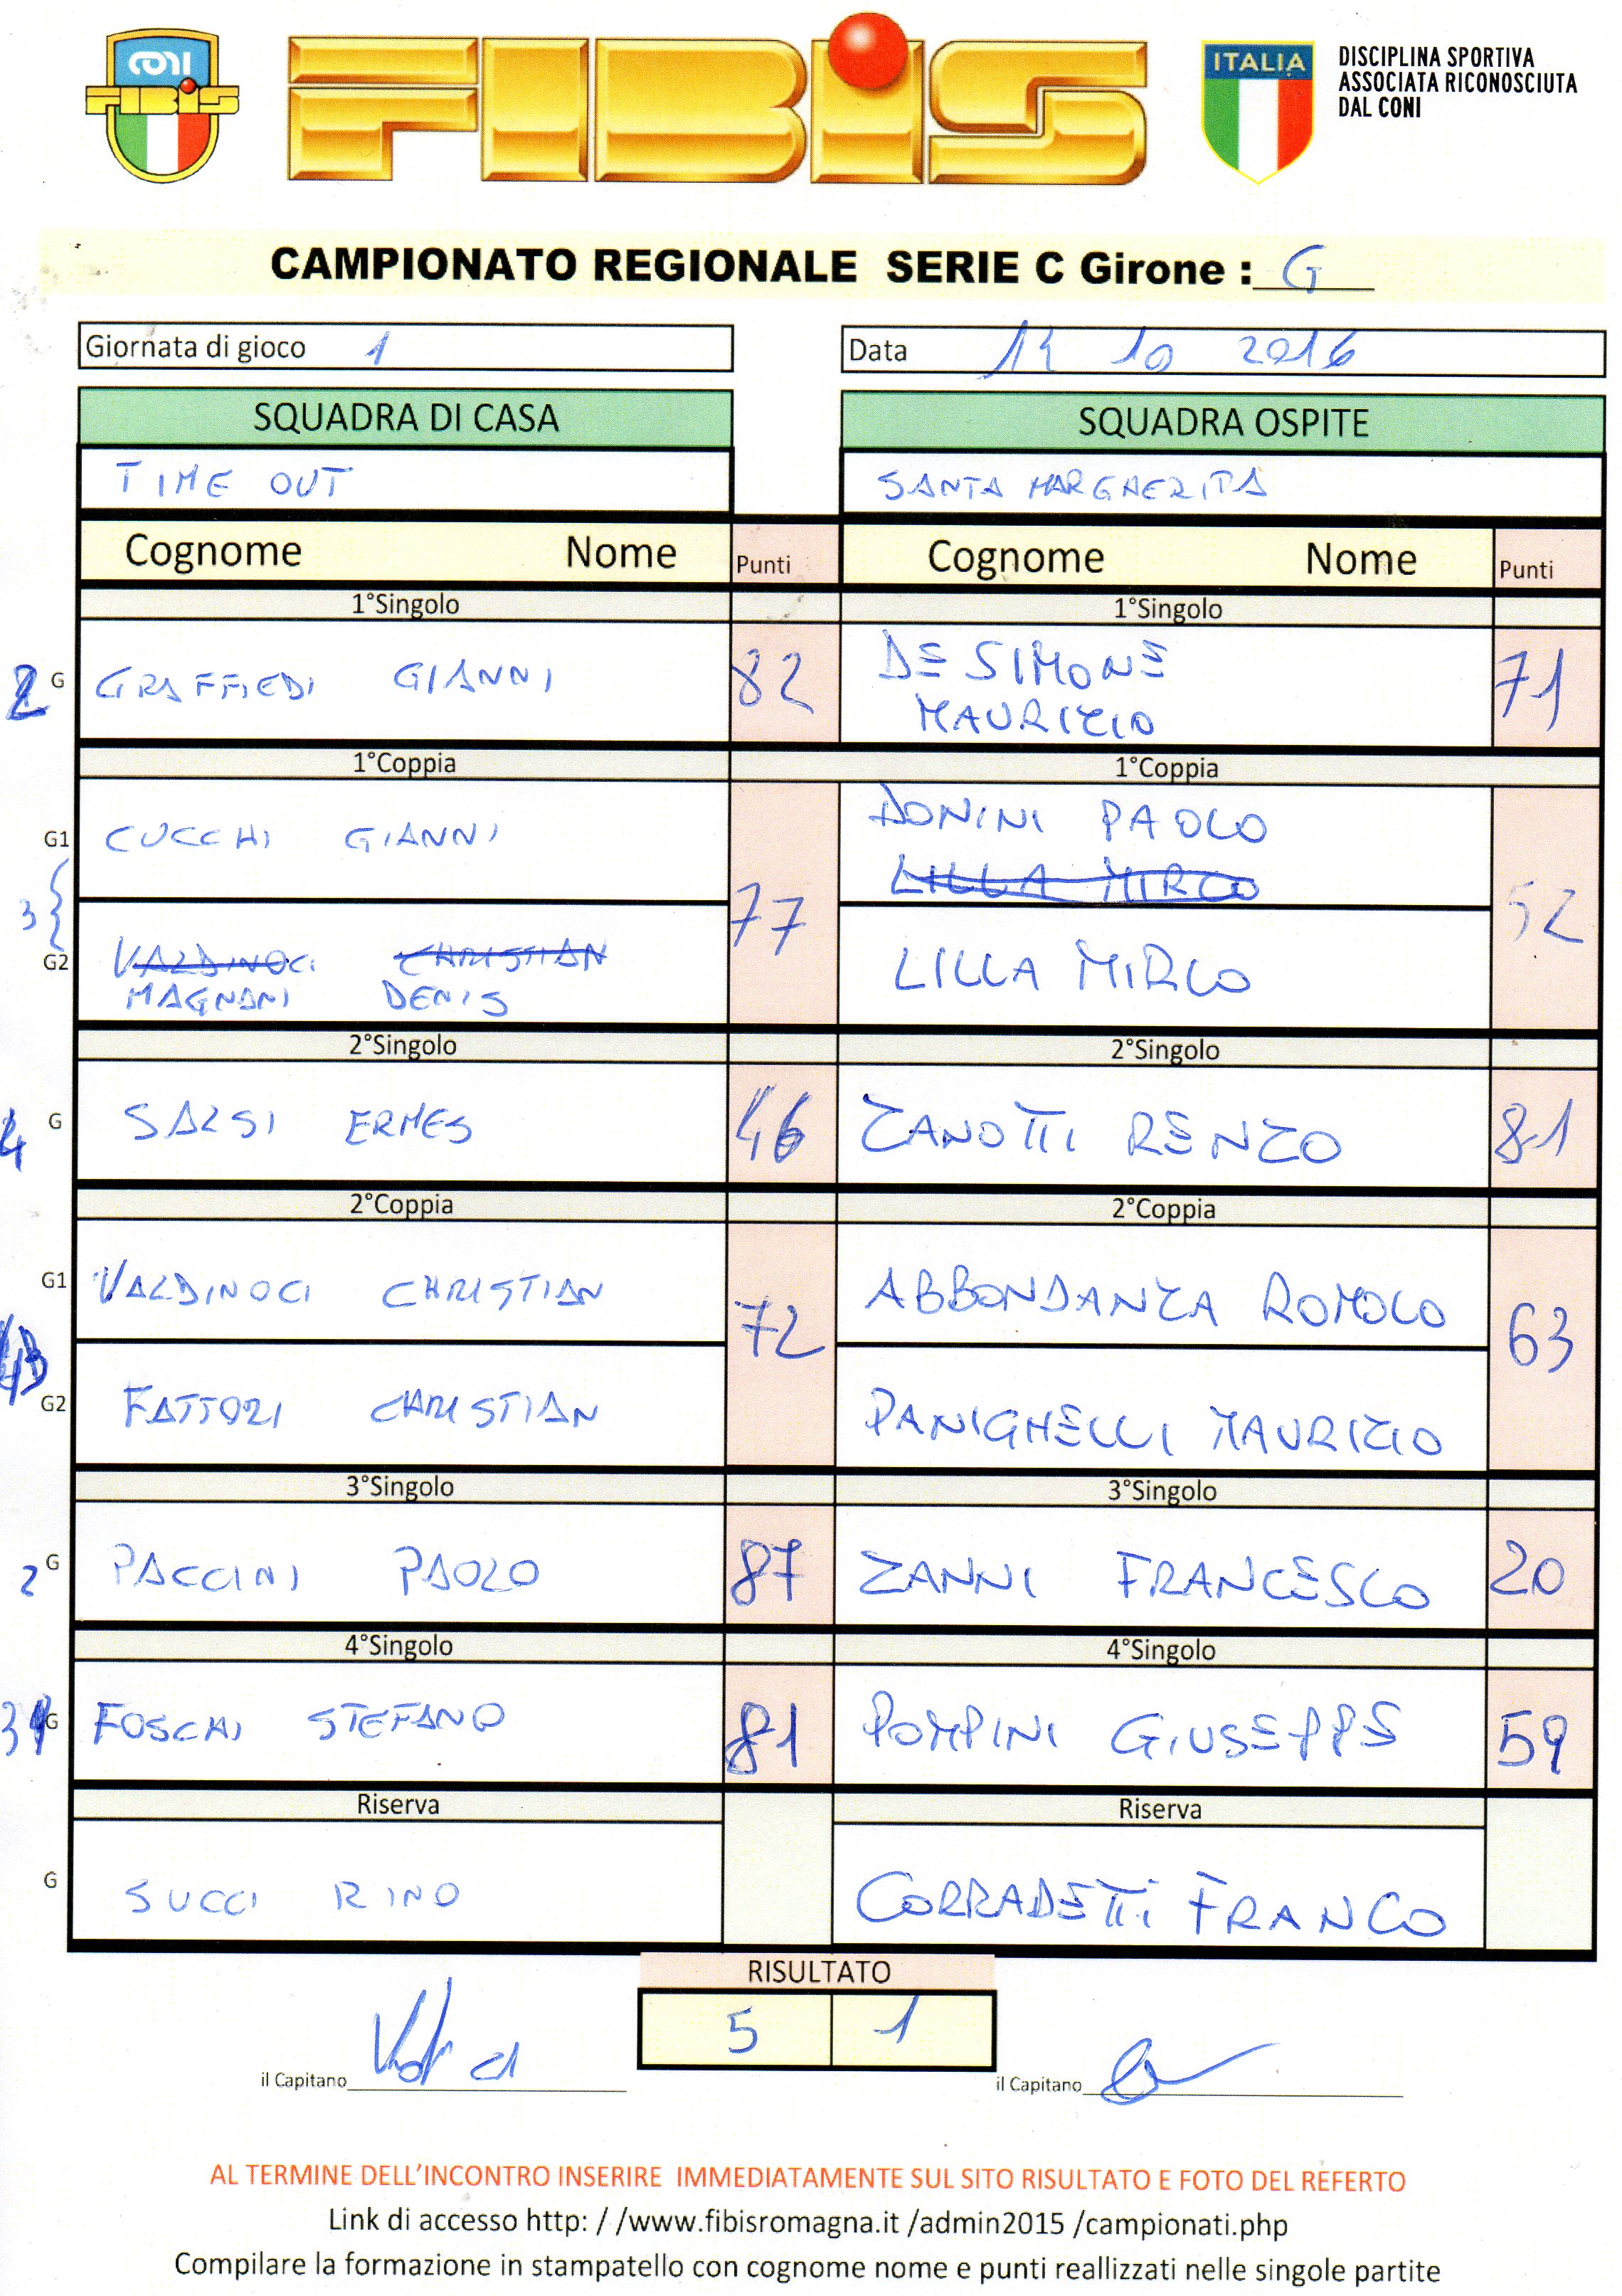 CONI
FIBIS
FIBIS
ITALIA
DISCIPLINA SPORTIVA
ASSOCIATA RICONOSCIUTA
DAL CONI
CAMPIONATO REGIONALE SERIE C Girone : G
Giornata di gioco 1
Data 10 2016
SQUADRA DI CASA SQUADRA OSPITE
TIME OUT SANTA MARGHERITA
Cognome Nome Punti Cognome Nome Punti
1°Singolo 1°Singolo
2 G GRAFFIEDI GIANNI 82 DE SIMONE 71
MAURIZIO
1°Coppia 1°Coppia
G1 CUCCHI GIANNI DONINI PAOLO
LILLA MIRCO
3 77 52
G2 VALDINOCI CHRISTIAN LILLA MIRCO
MAGNANI DENIS
2°Singolo 2°Singolo
4 G SALSI ERMES 46 ZANOTTI RENZO 81
2°Coppia 2°Coppia
G1 VALDINOCI CHRISTIAN ABBONDANZA ROMOLO
72 63
G2 FATTORI CHRISTIAN PANIGHELLI MAURIZIO
3°Singolo 3°Singolo
2 G PACCINI PAOLO 87 ZANNI FRANCESCO 20
4°Singolo 4°Singolo
3 G FOSCHI STEFANO 81 POMPINI GIUSEPPE 59
Riserva Riserva
G SUCCI RINO CORRADETTI FRANCO
RISULTATO
5 1
il Capitano il Capitano
AL TERMINE DELL'INCONTRO INSERIRE IMMEDIATAMENTE SUL SITO RISULTATO E FOTO DEL REFERTO
Link di accesso http: / /www.fibisromagna.it /admin2015 /campionati.php
Compilare la formazione in stampatello con cognome nome e punti reallizzati nelle singole partite